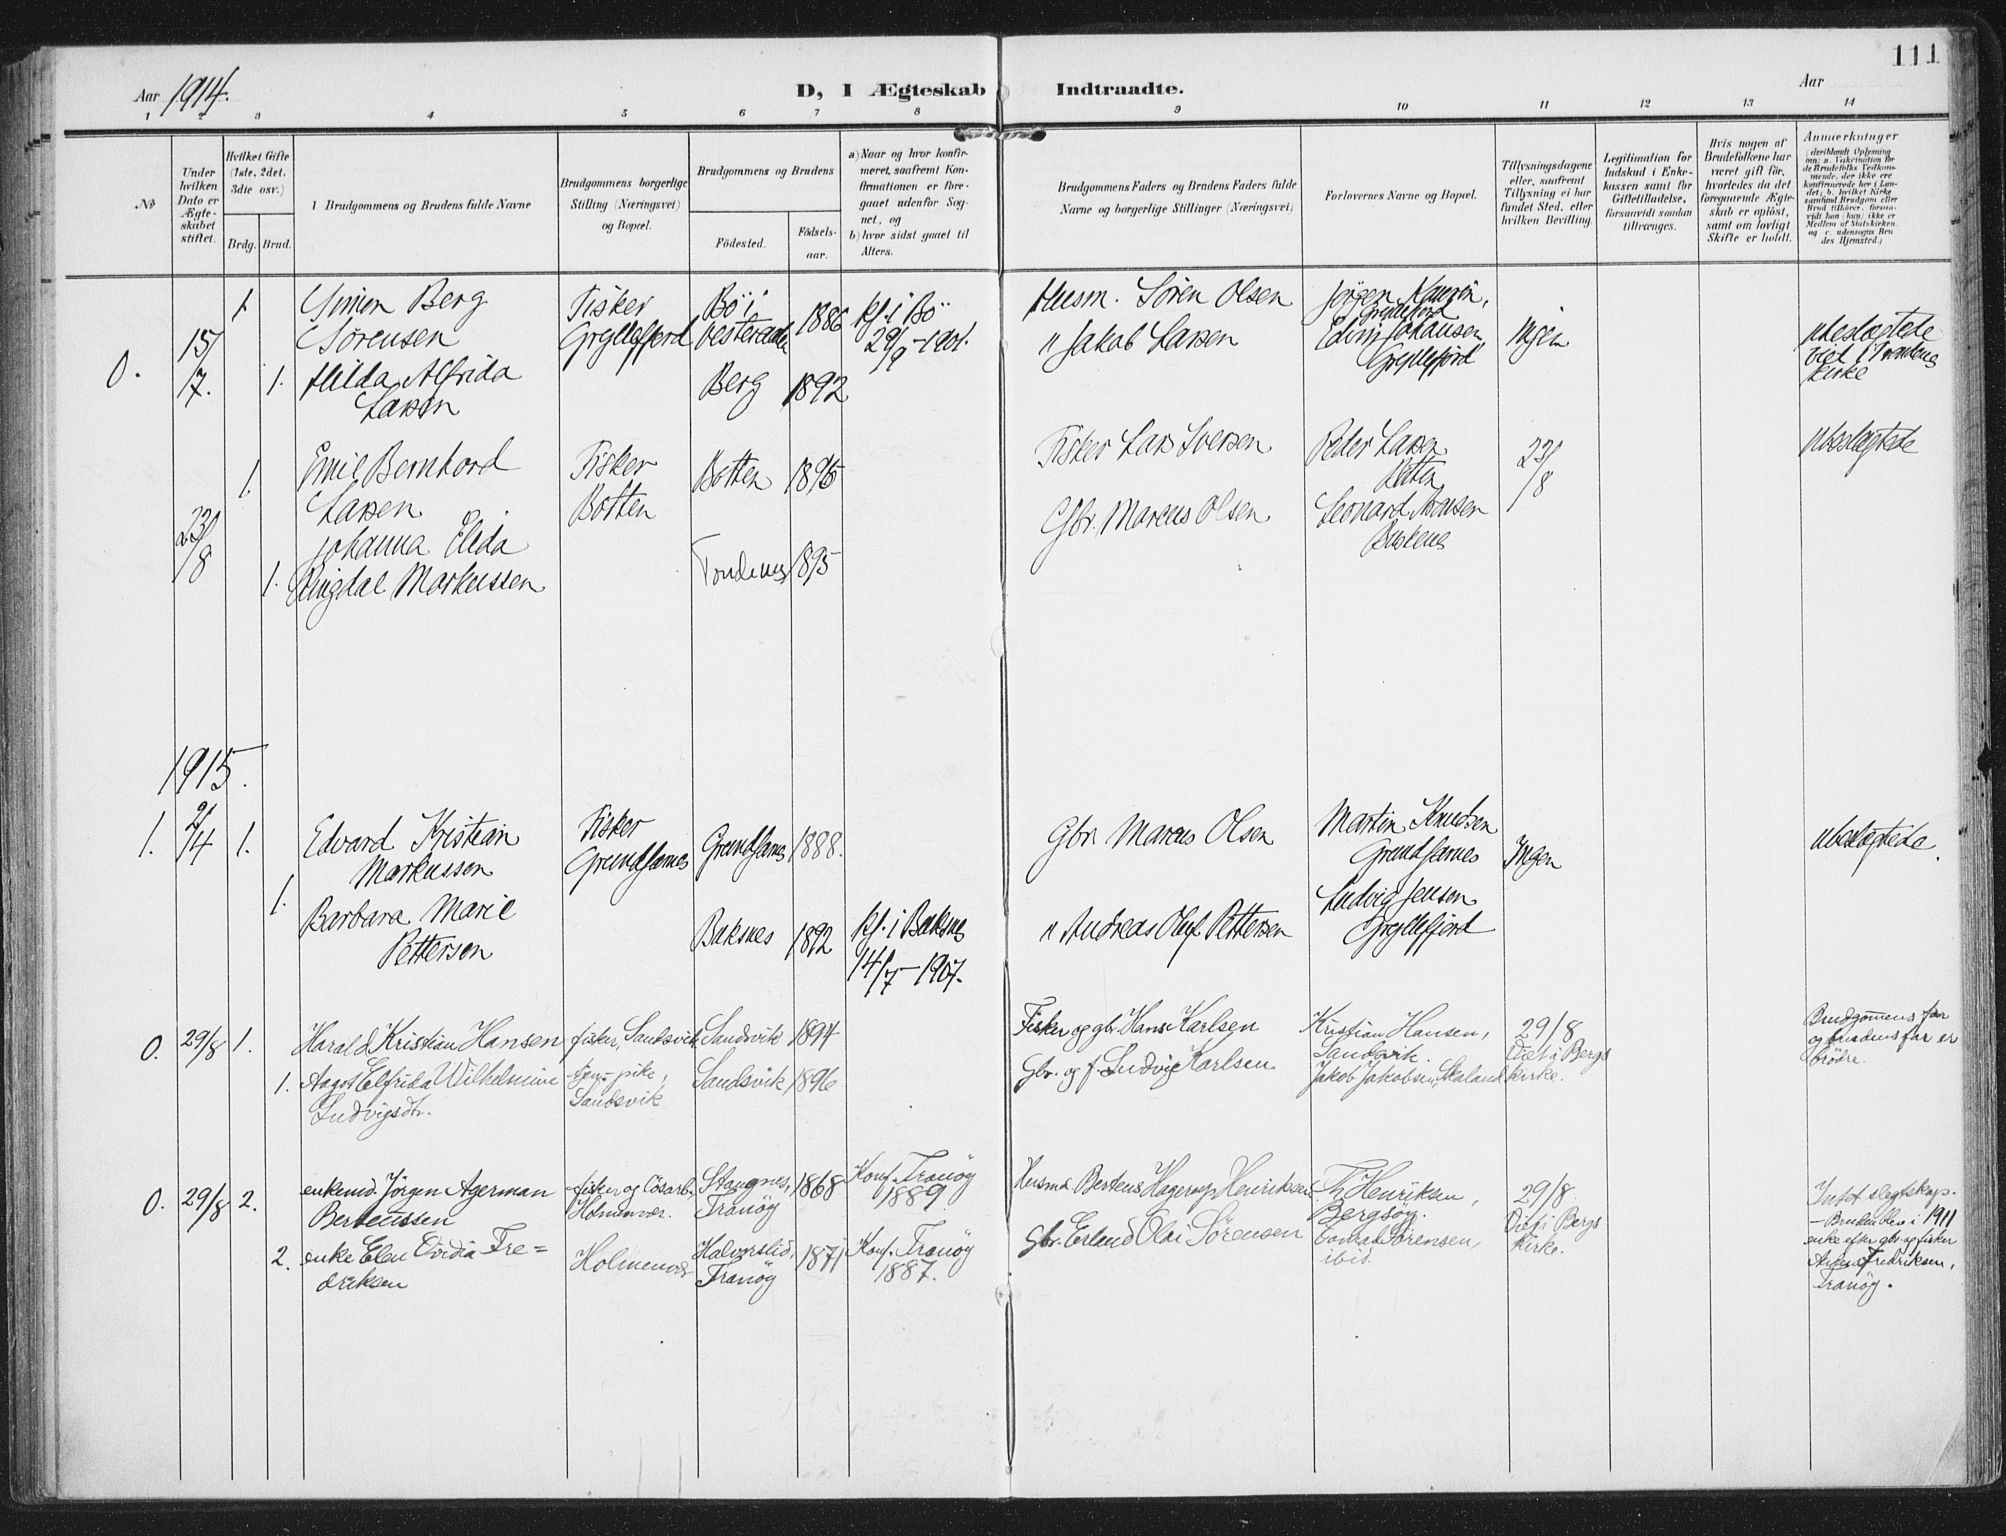 111
Aar 1914.
D, I Ægteskab Indtraadte.
Aar
1 2 3 4 5 6 7 8 9 10 11 12 13 14
No
Under hvilken Dato er Ægteskabet stiftet.
Hvilket Gifte (1ste, 2det, 3die osv.)
Brdg. Brud.
Brudgommens og Brudens fulde Navne
Brudgommens borgerlige Stilling (Næringsvei) og Bopæl.
Brudgommens og Brudens
Fødested.
Fødselsaar.
a) Naar og hvor konfirmeret, saafremt Konfirmationen er foregaaet udenfor Sognet, og
b) hvor sidst gaaet til Alters.
Brudgommens Faders og Brudens Faders fulde Navne og borgerlige Stillinger (Næringsvei)
Forlovernes Navne og Bopæl.
Tillysningsdagene eller, saafremt Tillysning ei har fundet Sted, efter hvilken Bevilling
Legitimation for Indskud i Enkekassen samt for Giftetilladelse, forsaavidt saadan tiltrænges.
Hvis nogen af Brudefolkene har været gift før, hvorledes da det foregaaende Ægteskab er opløst, samt om lovligt Skifte er holdt.
Anmærkninger
0. 15/7. 1. Simon Berg Sørensen
Fisker Gryllefjord
Bö i Vesteraalen 1886
kf. i Bö 29/9-1901.
Husm. Sören Olsen
Jörgen Kaurin, Gryllefjord
1. Hilda Alfrida Larsen
Berg 1892
" Jakob Larsen
Edvin Johansen, Gryllefjord
Ingen
ubeslægtede
viet i Torskens kirke
23/8 1. Emil Bernhard Larsen
Fisker Botten
Botten 1895
Fisker Lars Iversen
Peder Larsen Botten
23/8
ubeslægtede
1. Johanna Elida Ringdal Markussen
1895
Gbr. Marcus Olsen
Leonard
1915.
1. 2/4 1. Edvard Kristian Markussen
Fisker Grundfarnes
Grundfarnes 1888.
Gbr. Marcus Olsen
Martin Knudsen Grundfarnes
Ingen
ubeslægtede.
1. Barbara Marie Pettersen
Baksnes 1892
kf. i Baksnes 14/7-1907.
" Andreas Oluf Pettersen
Ludvig Jenson Gryllefjord
0. 29/8 1. Harald Kristian Hansen
fisker, Sandsvik
Sandsvik 1894
Fisker og gbr. Hans Karlsen
Kristian Hansen, Sandsvik.
29/8
Viet i Bergs kirke.
Brudgomens far og brudens far er brödre.
1. Aagot Elfrida Wilhelmine Ludvigsdtr.
tjen.pike, Sandsvik
Sandsvik 1896
Gbr. og f. Ludvig Karlsen
Jakob Jakobsen, Skaland
0. 29/8 2. enkemd. Jörgen Agerman Berteussen
fisker og lösarb. Holmenvær.
Stangnes, Tranöy 1868
Konf. Tranöy 1889.
Husmd. Berteus Hagerup Henriksen
Th Henriksen, Bergsöy.
29/8.
Viet i Bergs kirke.
Intet slegtskap. - Bruden blev i 1911 enke efter gbr. og fisker Fredriksen, Tranöy.
2. enke Elen Ovidia Fre=deriksen
Holmenvær
Halvorslid, Tranöy 1871
Konf. Tranöy 1887.
Gbr. Erland Olai Sörensen
Sörensen, ibid.